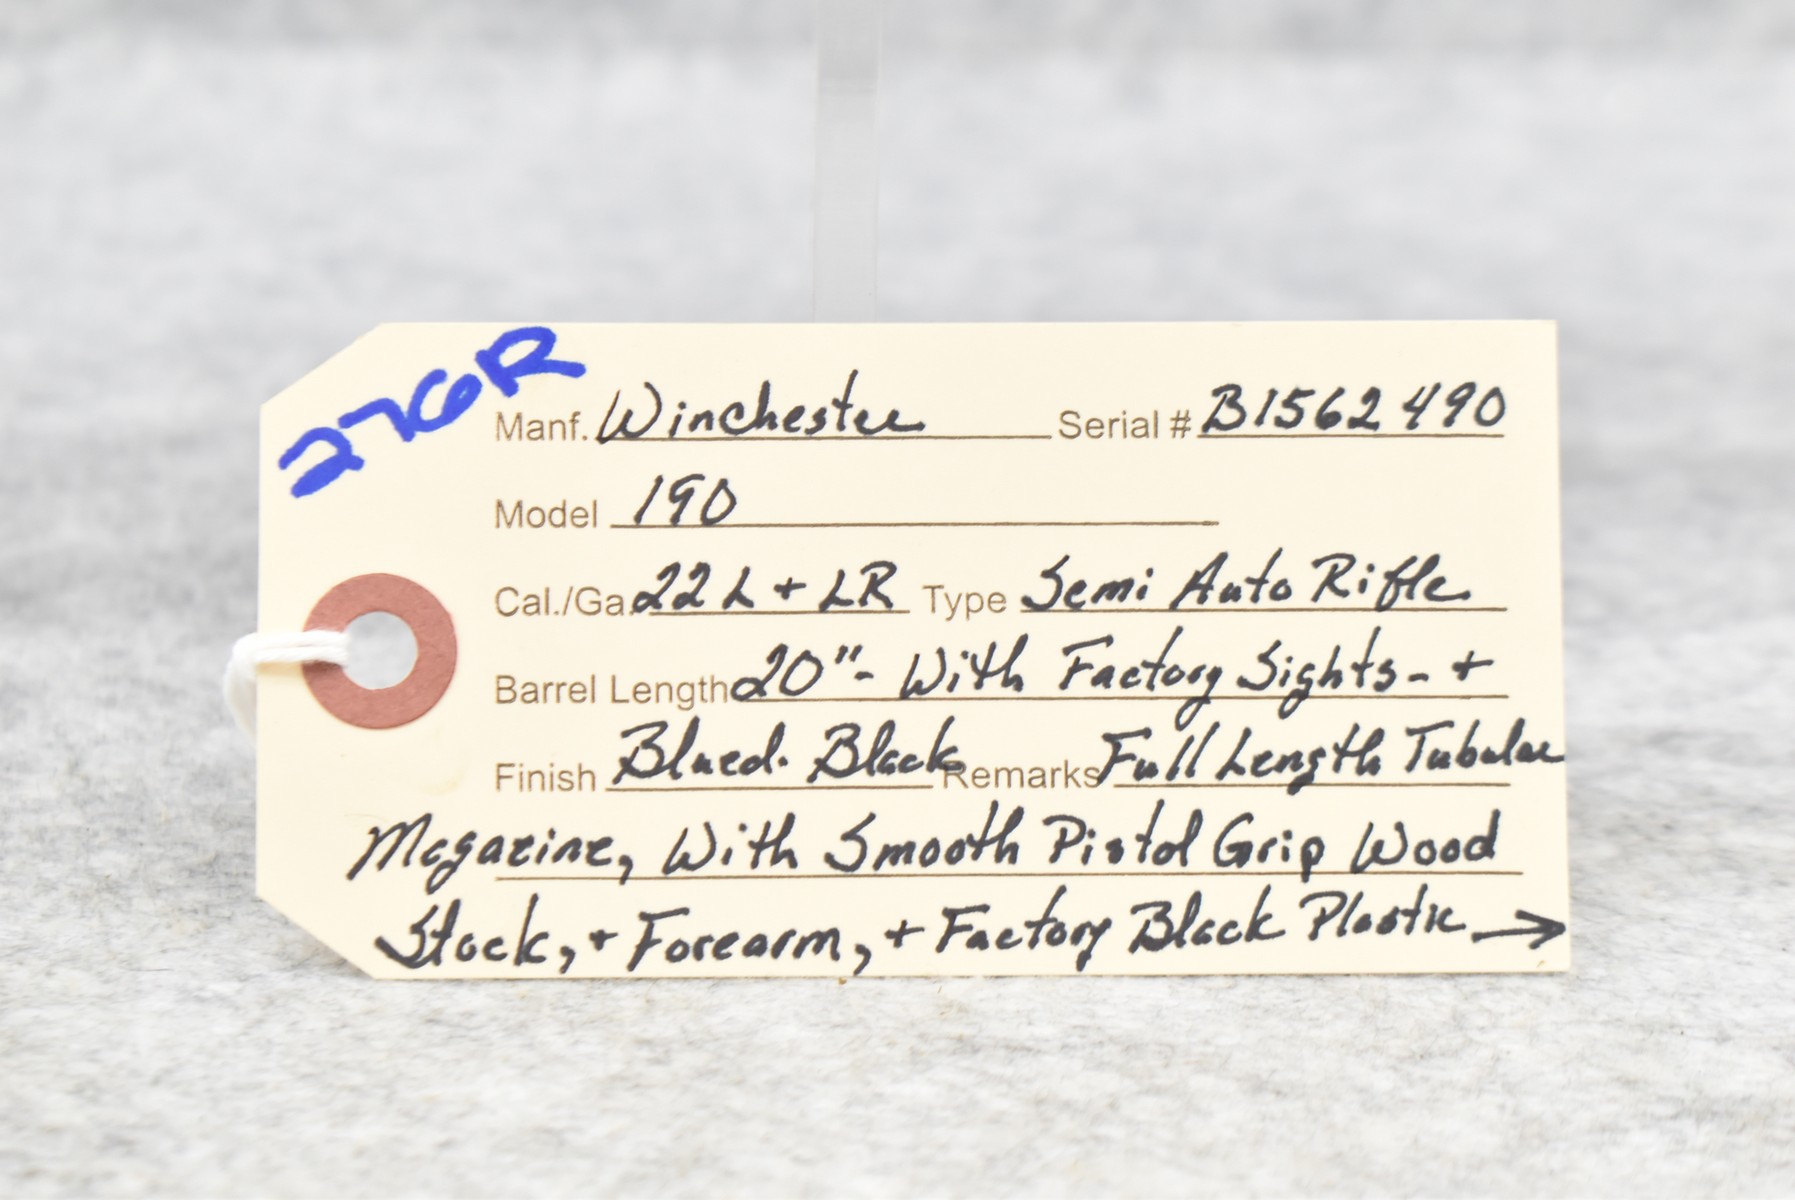 276R
Manf. Winchester Serial # B1562490
Model 190
Cal./Ga. 22 L + LR Type Semi Auto Rifle
Barrel Length 20" - With Factory Sights - +
Finish Blued. Black Remarks Full Length Tubular
Magazine, With Smooth Pistol Grip Wood
Stock, + Forearm, + Factory Black Plastic →